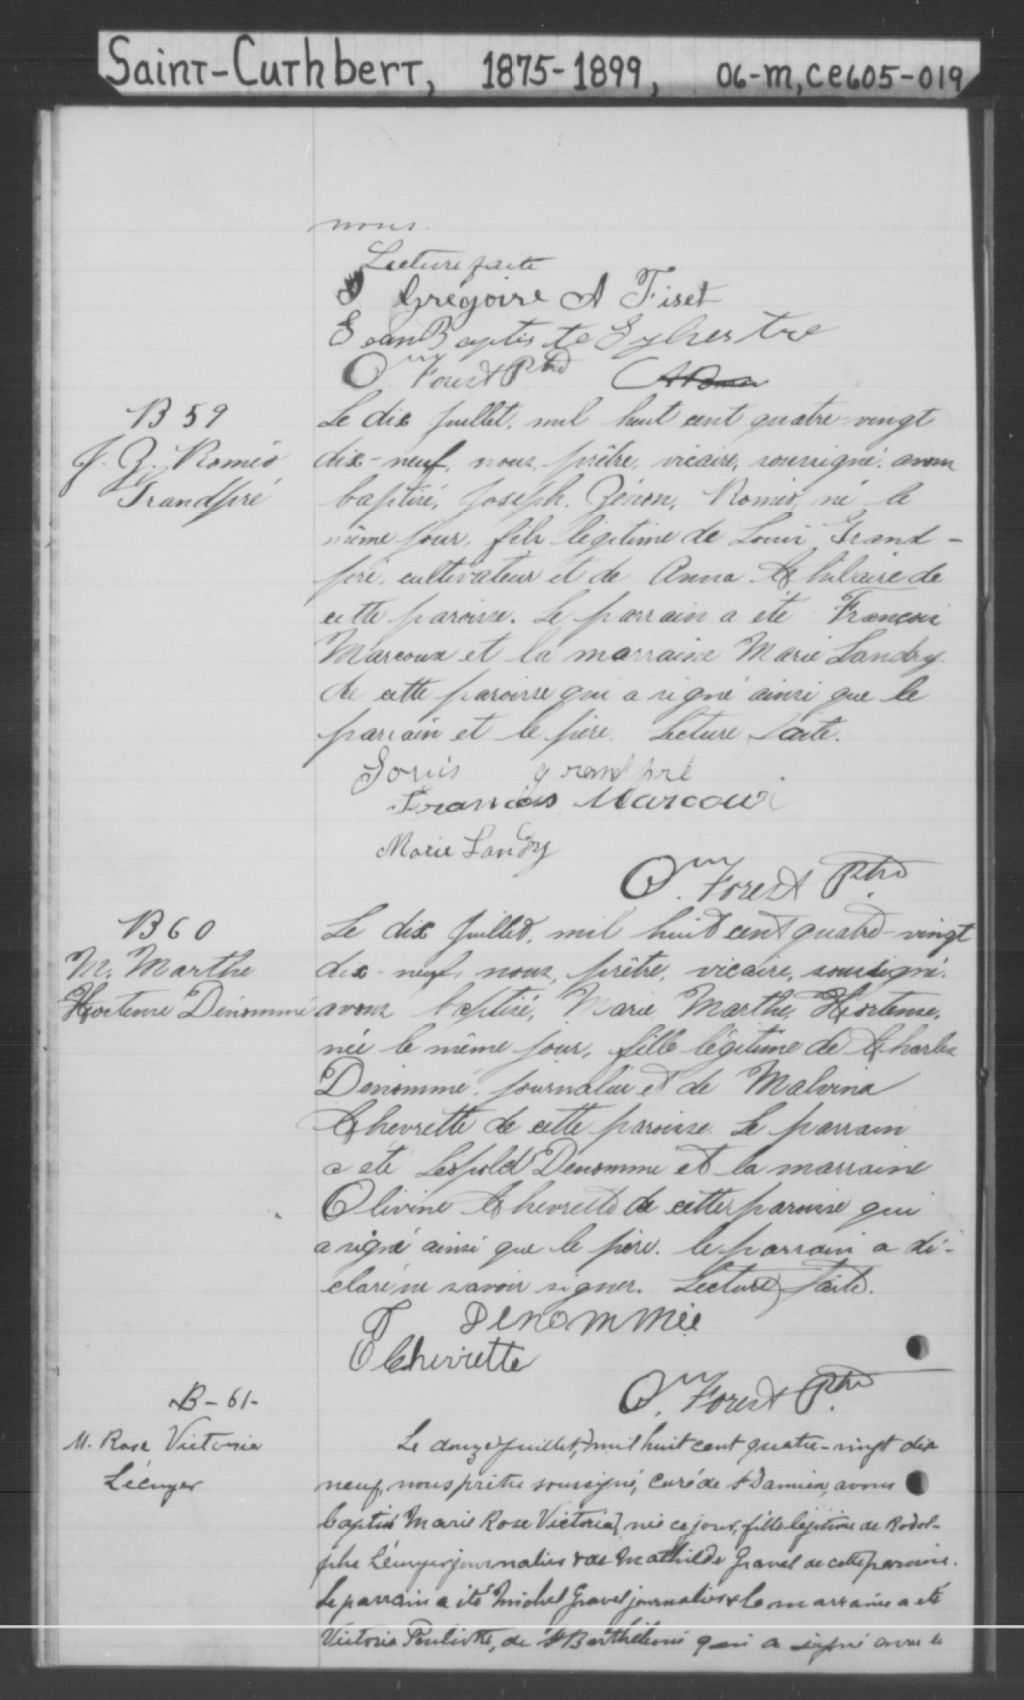 Saint-Cuthbert, 1875-1899, 06-M, CE605-019
nous
Lecture faite
Grégoire A Fiset
Jean Baptiste Sylvestre
Forest Ptre
B 59
J. Z. Roméo
Grandpré
Le dix Juillet, mil huit cent quatre-vingt
dix-neuf, nous, prêtre, vicaire, soussigné, avons
baptisé, Joseph, Zénon, Roméo, né le
même jour, fils légitime de Louis Grand-
pré, cultivateur et de Anna Chilaire de
cette paroisse. Le parrain a été François
Marcoux et la marraine Marie Landry
de cette paroisse qui a signé ainsi que le
parrain et le père. Lecture faite.
Louis grandpré
François Marcoux
Marie Landry
Forest Ptre
B 60
M. Marthe
Hortense Dénommé
Le dix Juillet, mil huit cent quatre-vingt
dix-neuf, nous, prêtre, vicaire, soussigné,
avons baptisé, Marie, Marthe, Hortense,
née le même jour, fille légitime de Charles
Dénommé, journalier et de Malvina
Chevrette de cette paroisse. Le parrain
a été Léopold Dénommé et la marraine
Olivine Chevrette de cette paroisse qui
a signé ainsi que le père. le parrain a dé-
claré ne savoir signer. Lecture faite.
Denommée
O Chevrette
Forest Ptre
B-61-
M. Rose Victoria
Lécuyer
Le douze juillet, mil huit cent quatre-vingt dix
neuf, nous prêtre soussigné, curé de St Damien, avons
baptisé Marie Rose Victoria, née ce jour, fille légitime de Rodol-
phe Lécuyer journalier & de Mathilde Gravel de cette paroisse.
Le parrain a été Michel Gravel journalier & la marraine a été
Victoria Pouliotte, de St Barthélemi qui a signé avec le